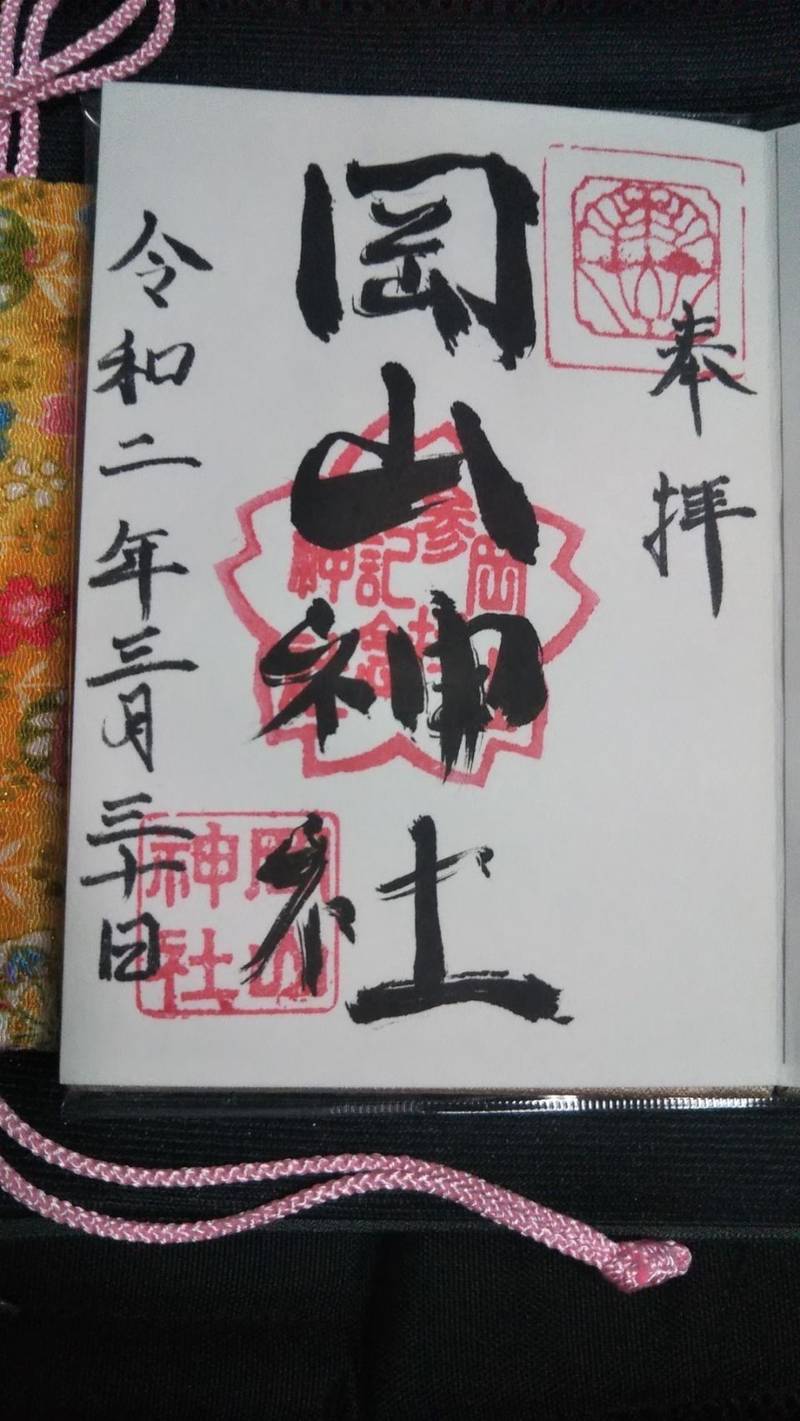 奉拝
岡山神社
岡山神社
参拝記念
岡山神社
令和二年三月三十日